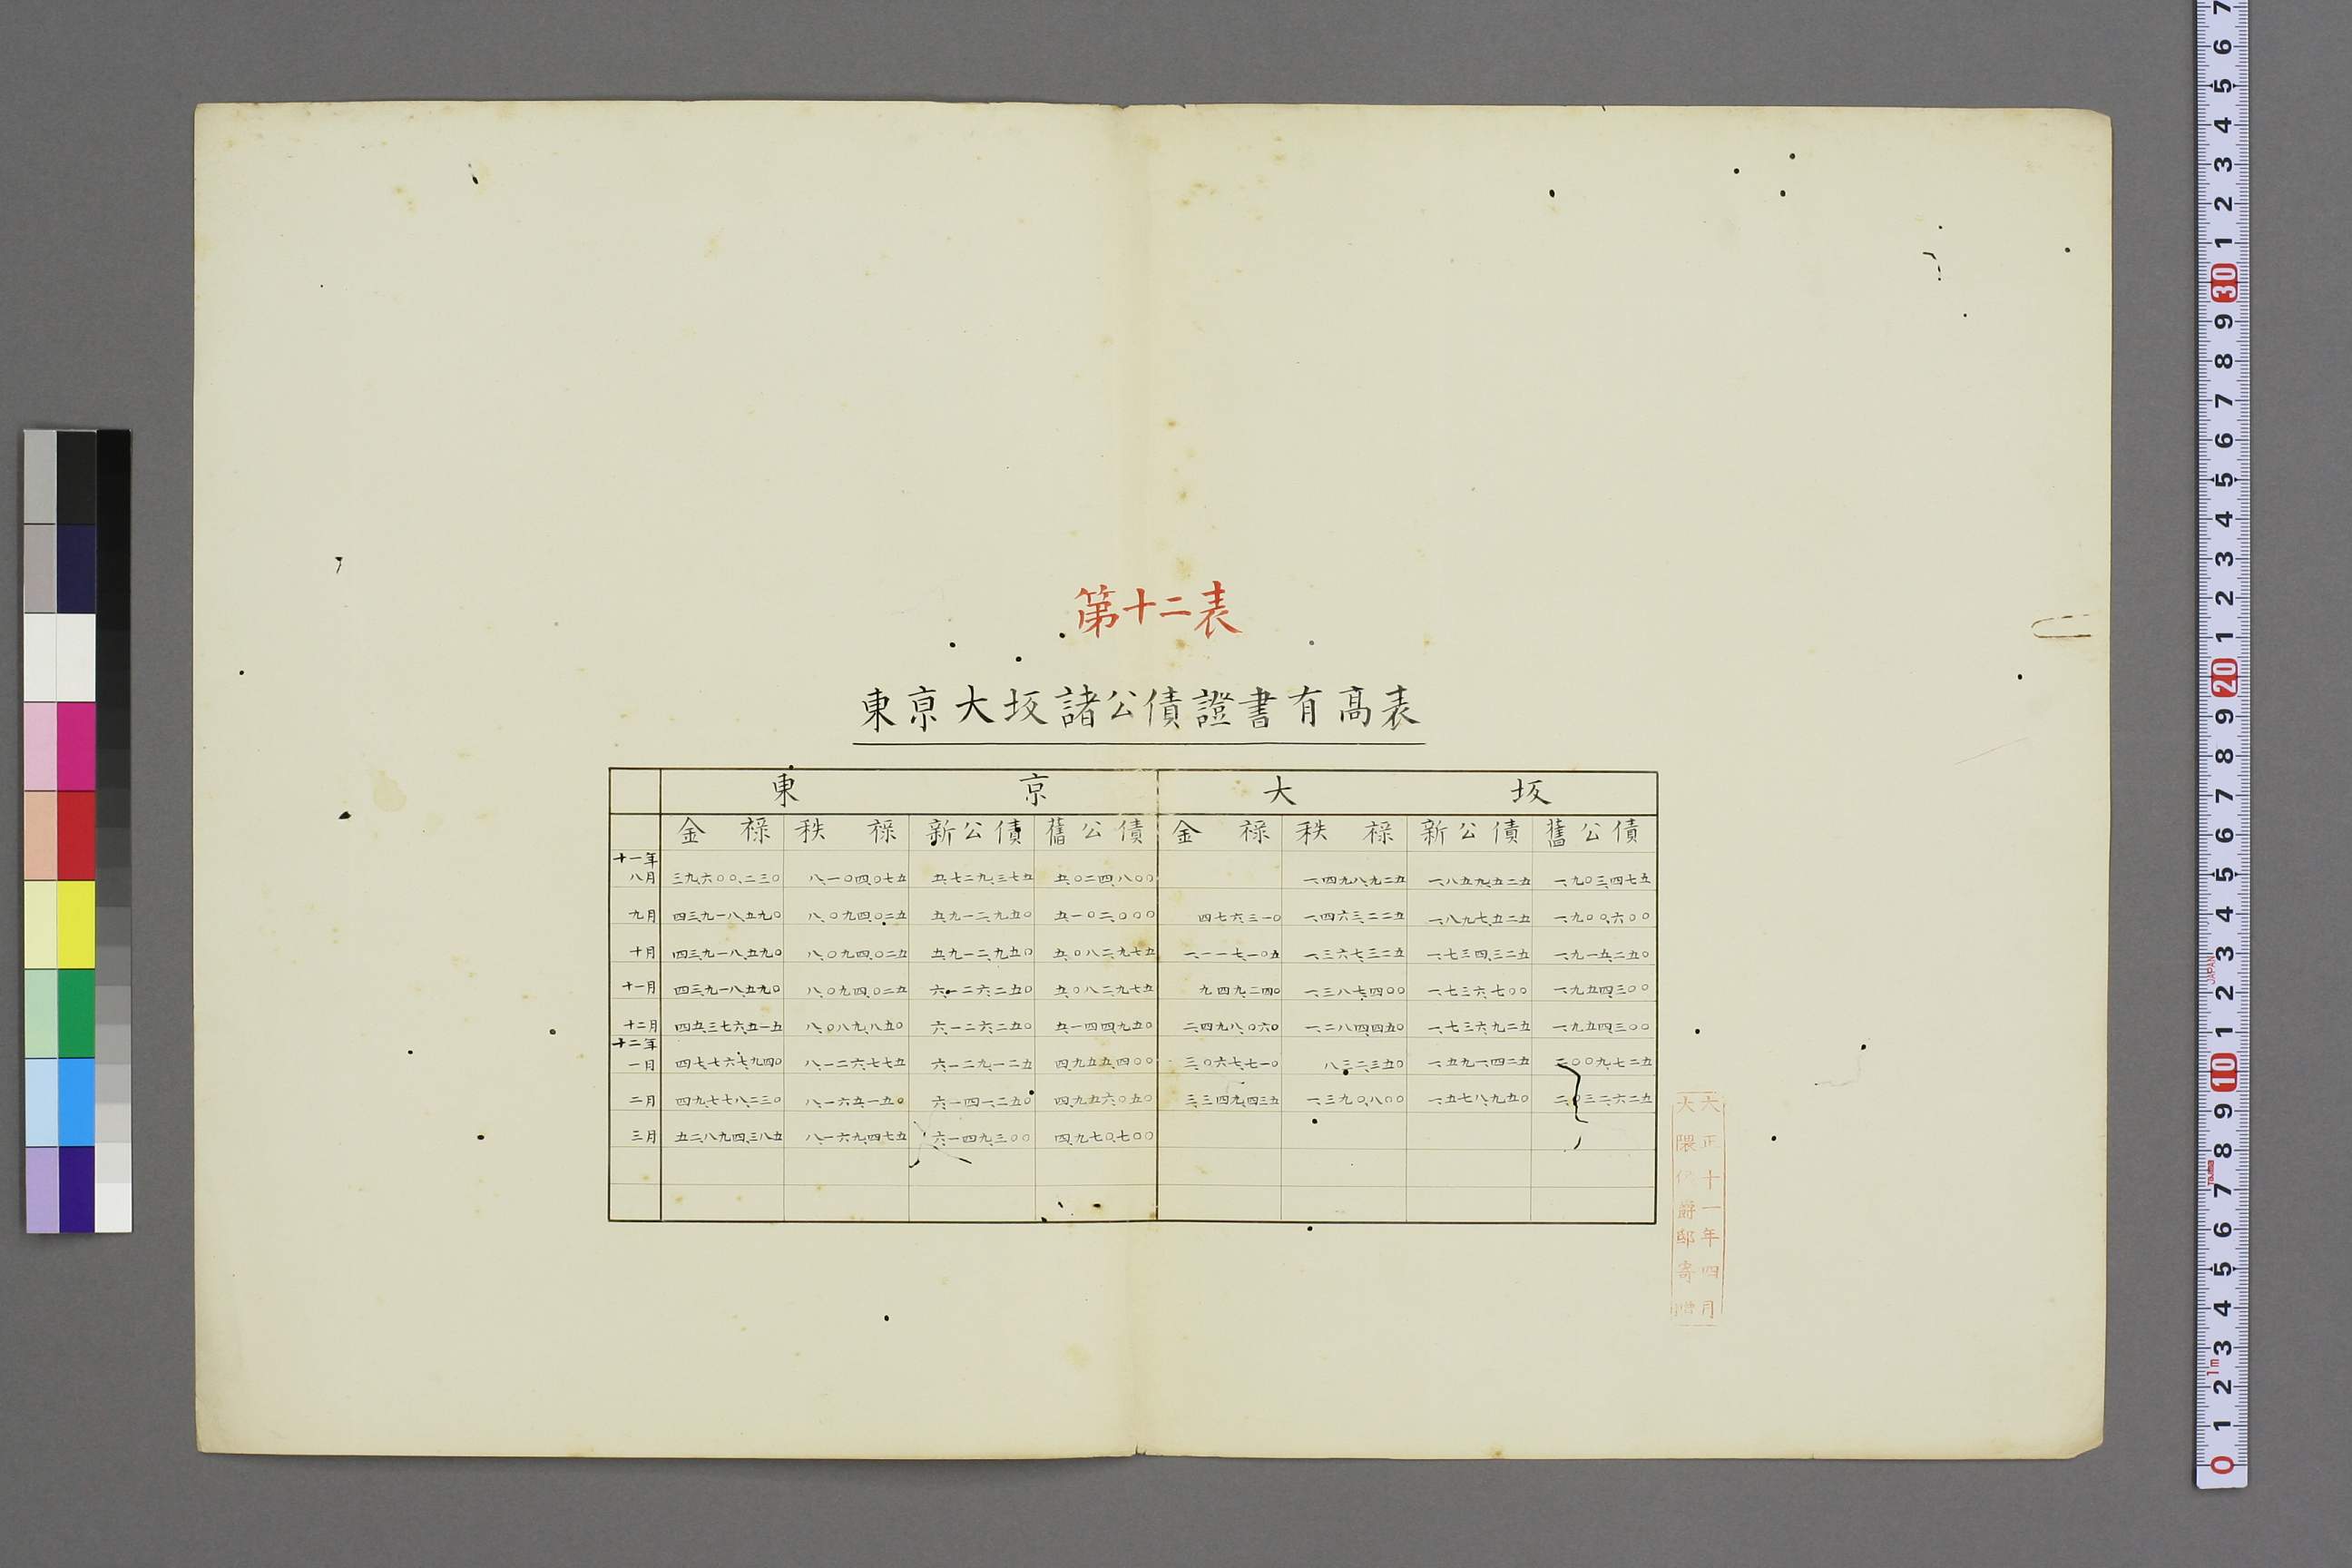 第十二表
東京大坂諸公債證書有高表
東京 大坂
金禄 秩禄 新公債 舊公債 金禄 秩禄 新公債 舊公債
十一年
八月 三九、六〇〇、二三〇 八、一〇四、〇七五 五、七二九、三七五 五、〇二四、八〇〇 一、四九八、九二五 一、八五九、五二五 一、九〇三、四七五
九月 四三、九一八、五九〇 八、〇九四、〇二五 五、九一二、九五〇 五、一〇二、〇〇〇 四七六、三一〇 一、四六三、二二五 一、八九七、五二五 一、九〇〇、六〇〇
十月 四三、九一八、五九〇 八、〇九四、〇二五 五、九一二、九五〇 五、〇八二、九七五 一、一一七、一〇五 一、三六七、三二五 一、七三四、三二五 一、九一五、二五〇
十一月 四三、九一八、五九〇 八、〇九四、〇二五 六、一二六、二五〇 五、〇八二、九七五 九四九、二四〇 一、三八七、四〇〇 一、七三六、七〇〇 一、九五四、三〇〇
十二月 四五、三七六、五一五 八、〇八九、八五〇 六、一二六、二五〇 五、一四四、九五〇 二、四九八、〇六〇 一、二八四、四五〇 一、七三六、九二五 一、九五四、三〇〇
十二年
一月 四七、七六七、九四〇 八、一二六、七七五 六、一二九、一二五 四、九五五、四〇〇 三、〇六七、七一〇 八三二、三五〇 一、五九一、四二五 二、〇〇九、七二五
二月 四九、七七八、二三〇 八、一六五、一五〇 六、一四一、二五〇 四、九五六、〇五〇 三、三四九、四三五 一、三九〇、八〇〇 一、五七八、九五〇 二、〇三二、六二五
三月 五二、八九四、三八五 八、一六九、四七五 六、一四九、三〇〇 四、九七〇、七〇〇
大正十一年四月
大隈侯爵邸寄贈